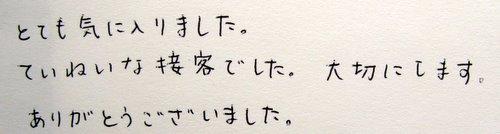 とても気に入りました。
ていねいな接客でした。 大切にします。
ありがとうございました。